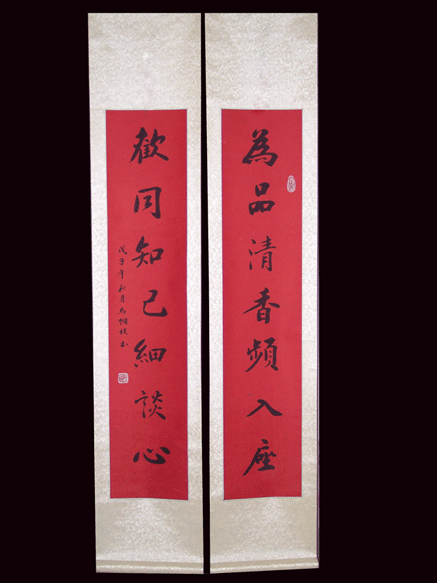 為品清香頻入座
歡同知己細談心
戊子年秋月